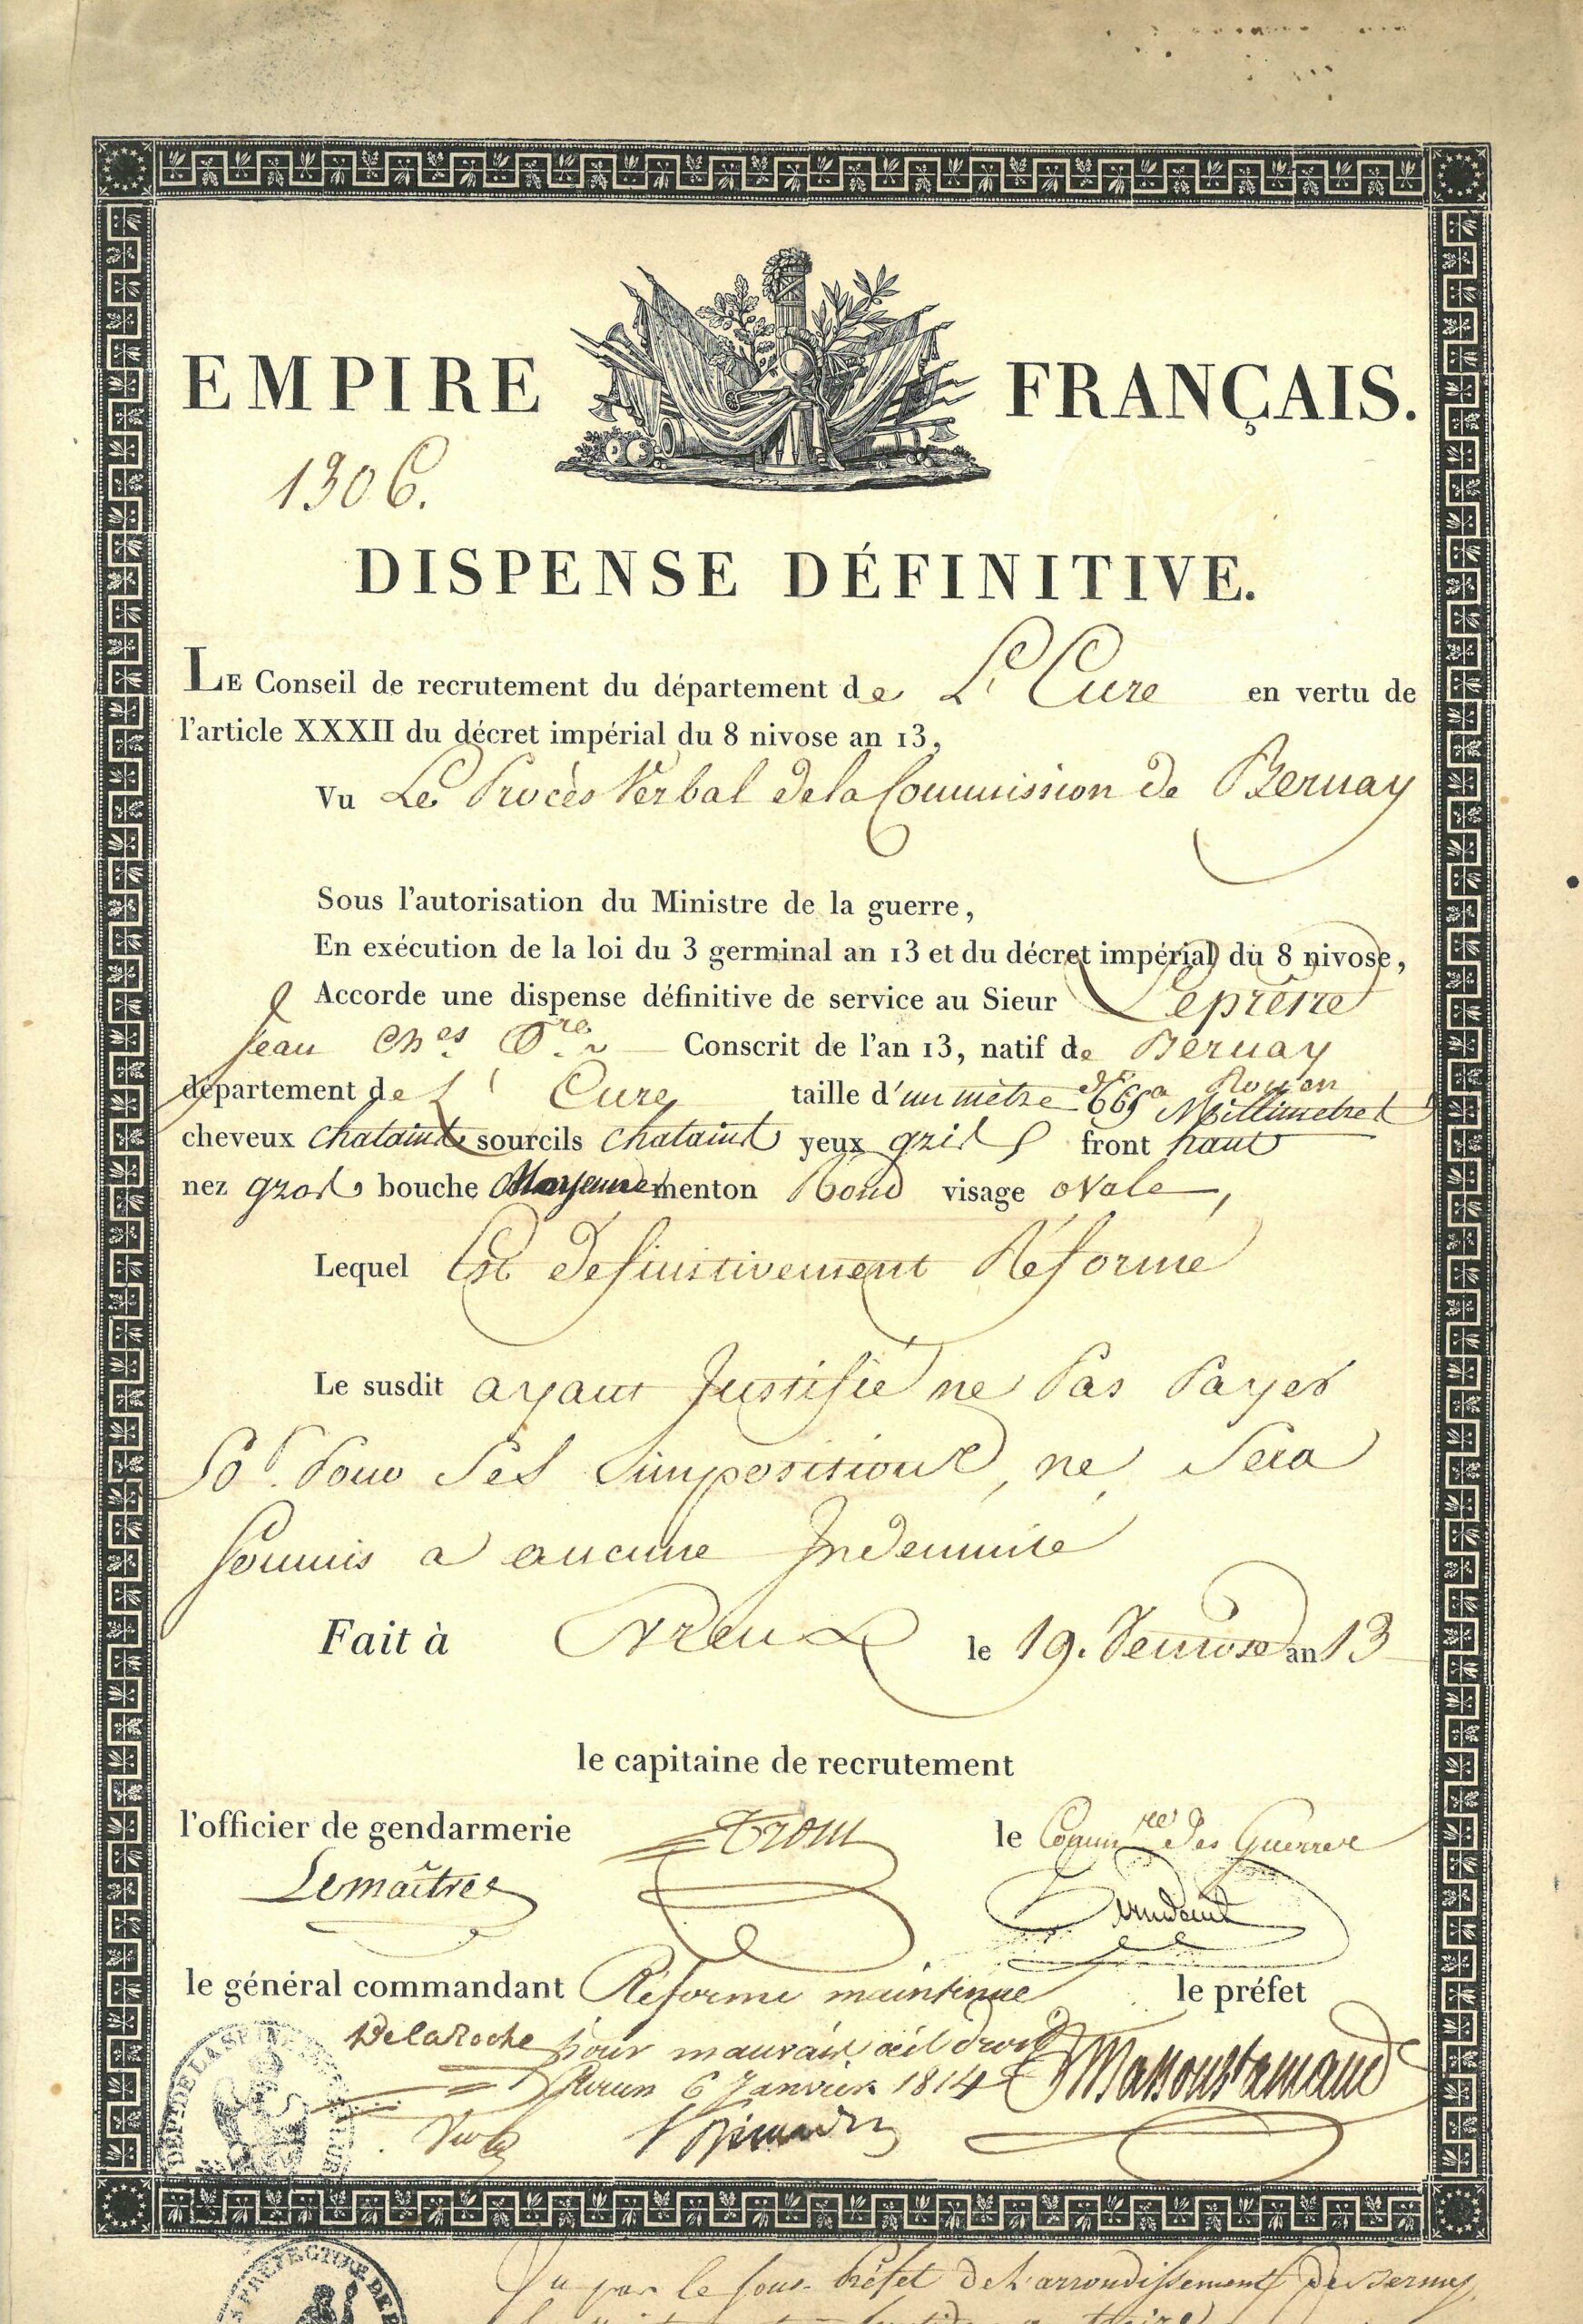 EMPIRE FRANÇAIS.
1306.
DISPENSE DÉFINITIVE.
LE Conseil de recrutement du département de L'Eure en vertu de
l'article XXXII du décret impérial du 8 nivose an 13,
Vu Le Procès Verbal de la Commission de Bernay
Sous l'autorisation du Ministre de la guerre,
En exécution de la loi du 3 germinal an 13 et du décret impérial du 8 nivose,
Accorde une dispense définitive de service au Sieur Leprêtre
Jean Ch.es Conscrit de l'an 13, natif de Bernay
de Rouen
département de L'Eure taille d'un mètre 665 Millimetres
cheveux chataint sourcils chataint yeux gris front haut
nez gros bouche Moyenne menton Rond visage ovale,
Lequel Est Definitivement Réformé
Le susdit ayant Justifié ne Pas Payer
50f Pour Ses impositions, ne Sera
Soumis a aucune Indemnité
Fait à Evreux le 19. Ventose an 13
le capitaine de recrutement
l'officier de gendarmerie le Comm.re des Guerres
Lemaître
le général commandant Réforme maintenue le préfet
Delaroche pour mauvais œil droit
6 Janvier 1814
Vu par le sous-Préfet de l'arrondissement de Bernay